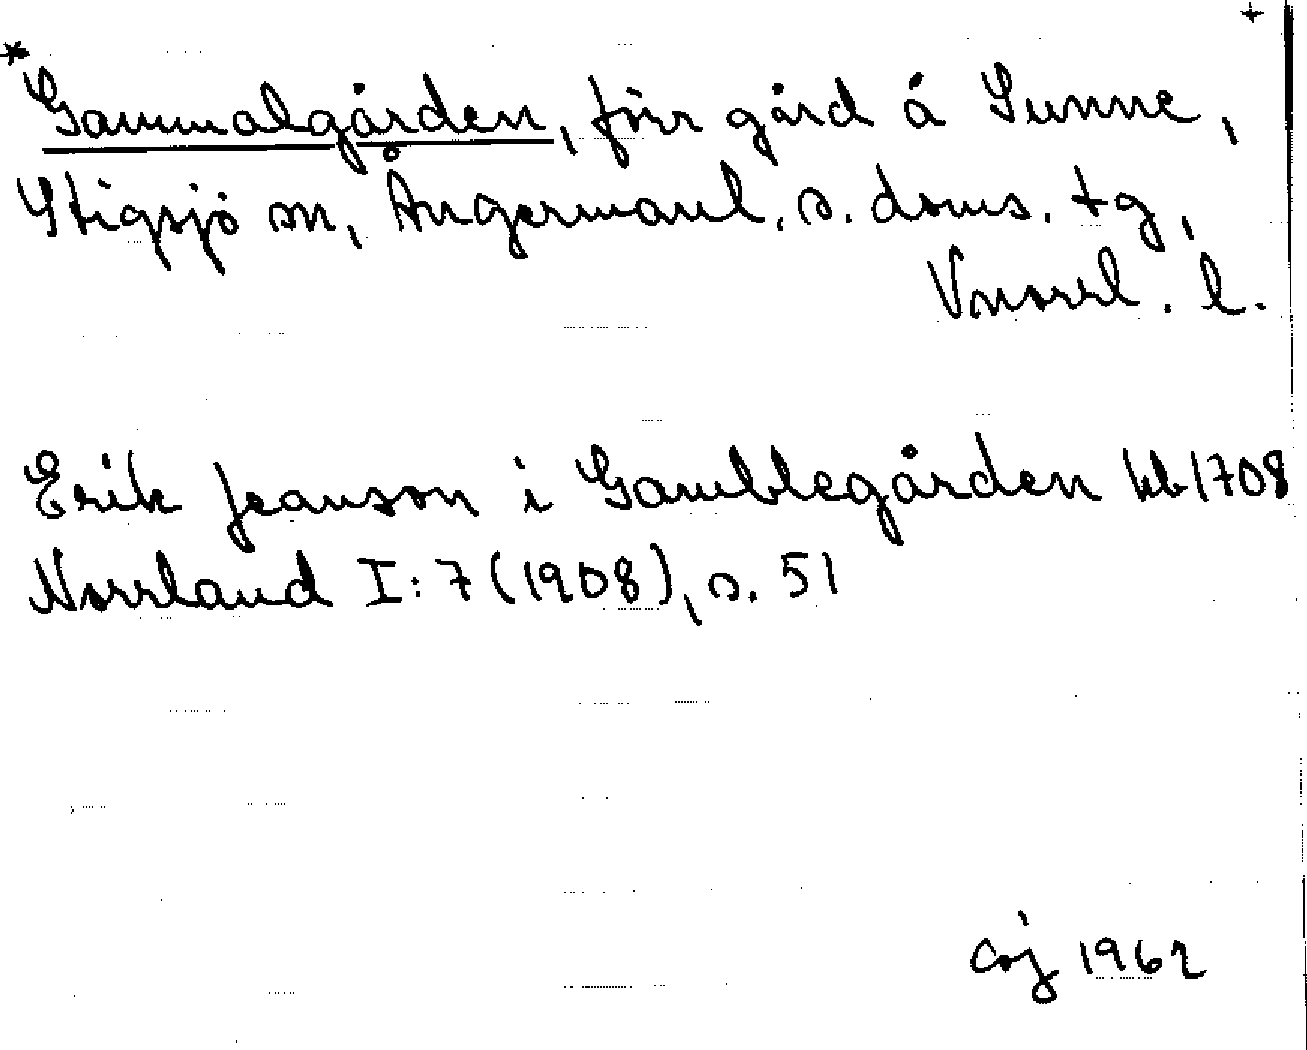 * +
Gammalgården, förr gård å Sunne,
Stigsjö sn, Ångermanl. s. doms. tg,
Vnorrl. l.
Erik Jeanson i Gamblegården kb 1708
Norrland I: 7 (1908), s. 51
CoJ 1962